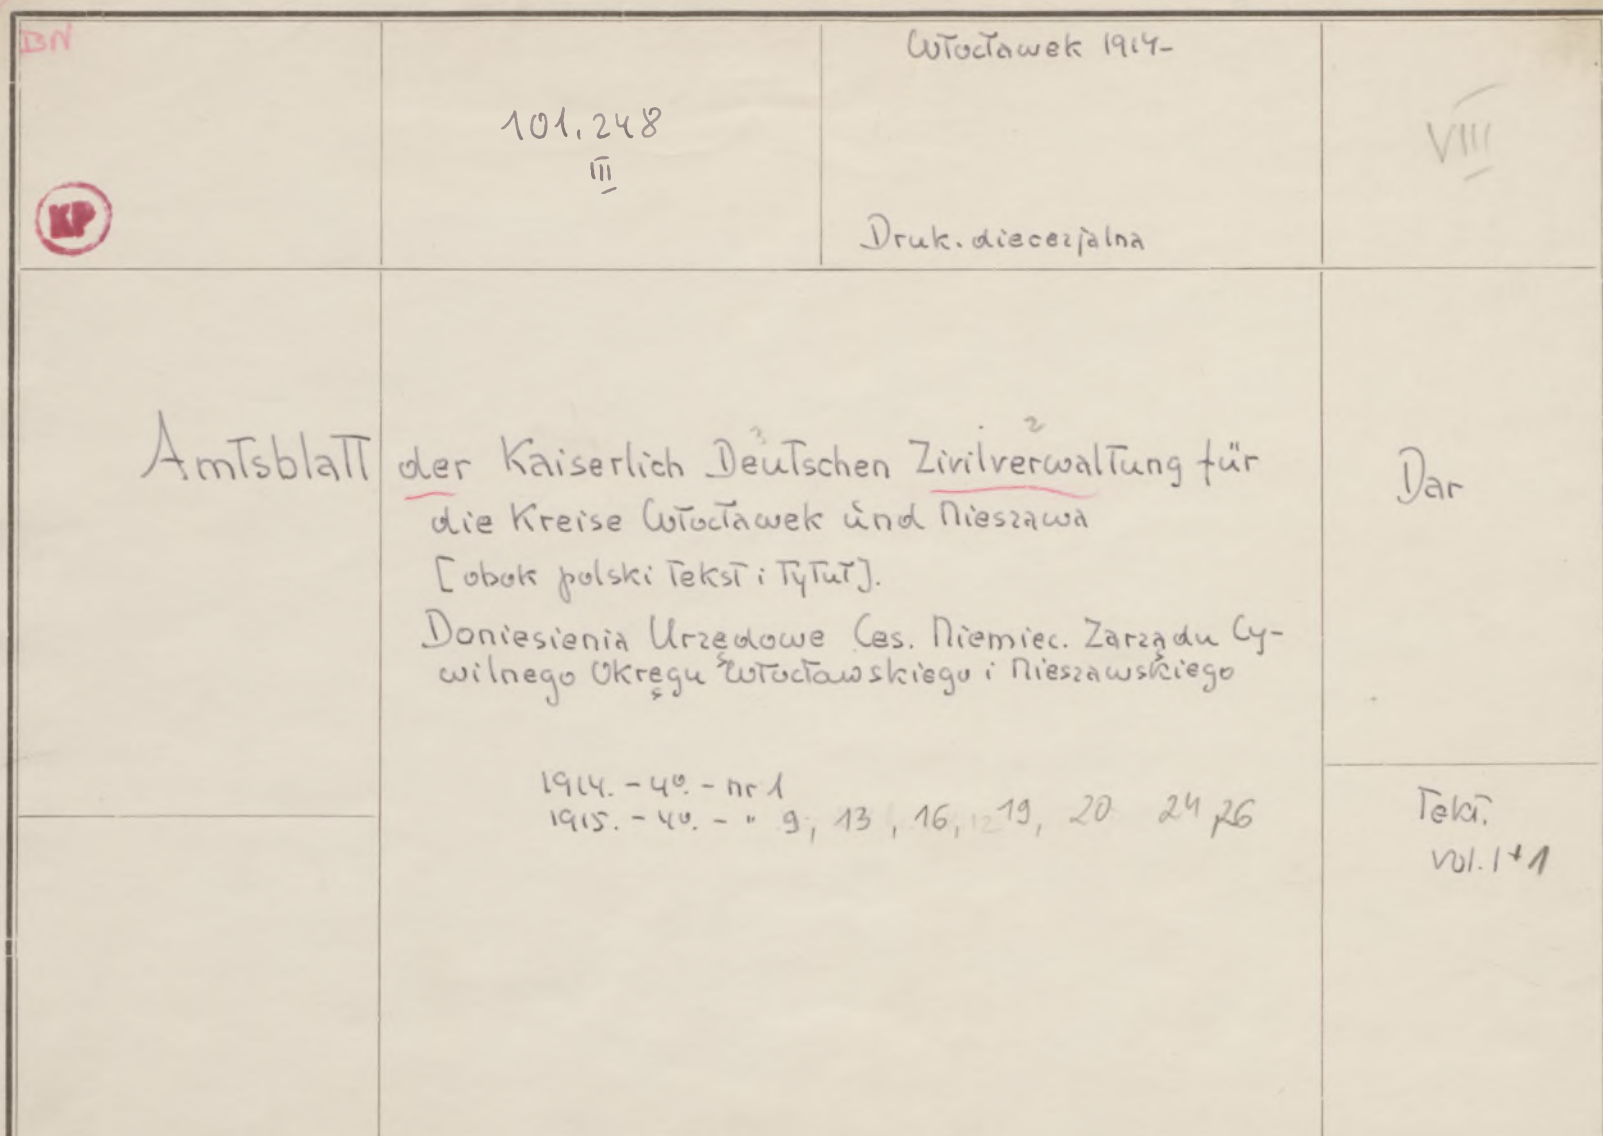 BN
Włocławek 1914-
101.248
III
VIII
KP
Druk. diecezjalna
Amtsblatt der Kaiserlich Deutschen Zivilverwaltung für
3
2
die Kreise Włocławek und Nieszawa
Dar
[obok polski tekst i tytuł].
Doniesienia Urzędowe Ces. Niemiec. Zarządu Cy-
wilnego Okręgu Włocławskiego i Nieszawskiego
1914. - 4º. - nr 1
1915. - 4º. - " 9, 13, 16, 19, 20 24, 26
Tekt.
vol. 1+1